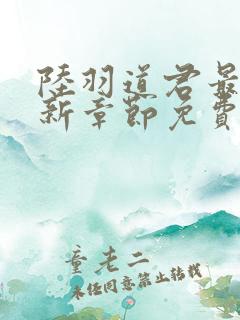 陸羽道君最
新章節免費
童老二
未经同意禁止转载